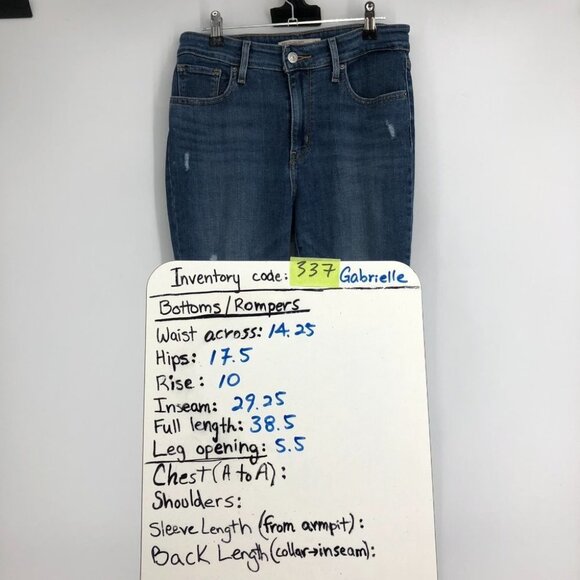 Inventory code: 337 Gabrielle
Bottoms/Rompers
Waist across: 14.25
Hips: 17.5
Rise: 10
Inseam: 29.25
Full length: 38.5
Leg opening: 5.5
Chest (A to A):
Shoulders:
Sleeve Length (from armpit):
Back Length (collar→inseam):